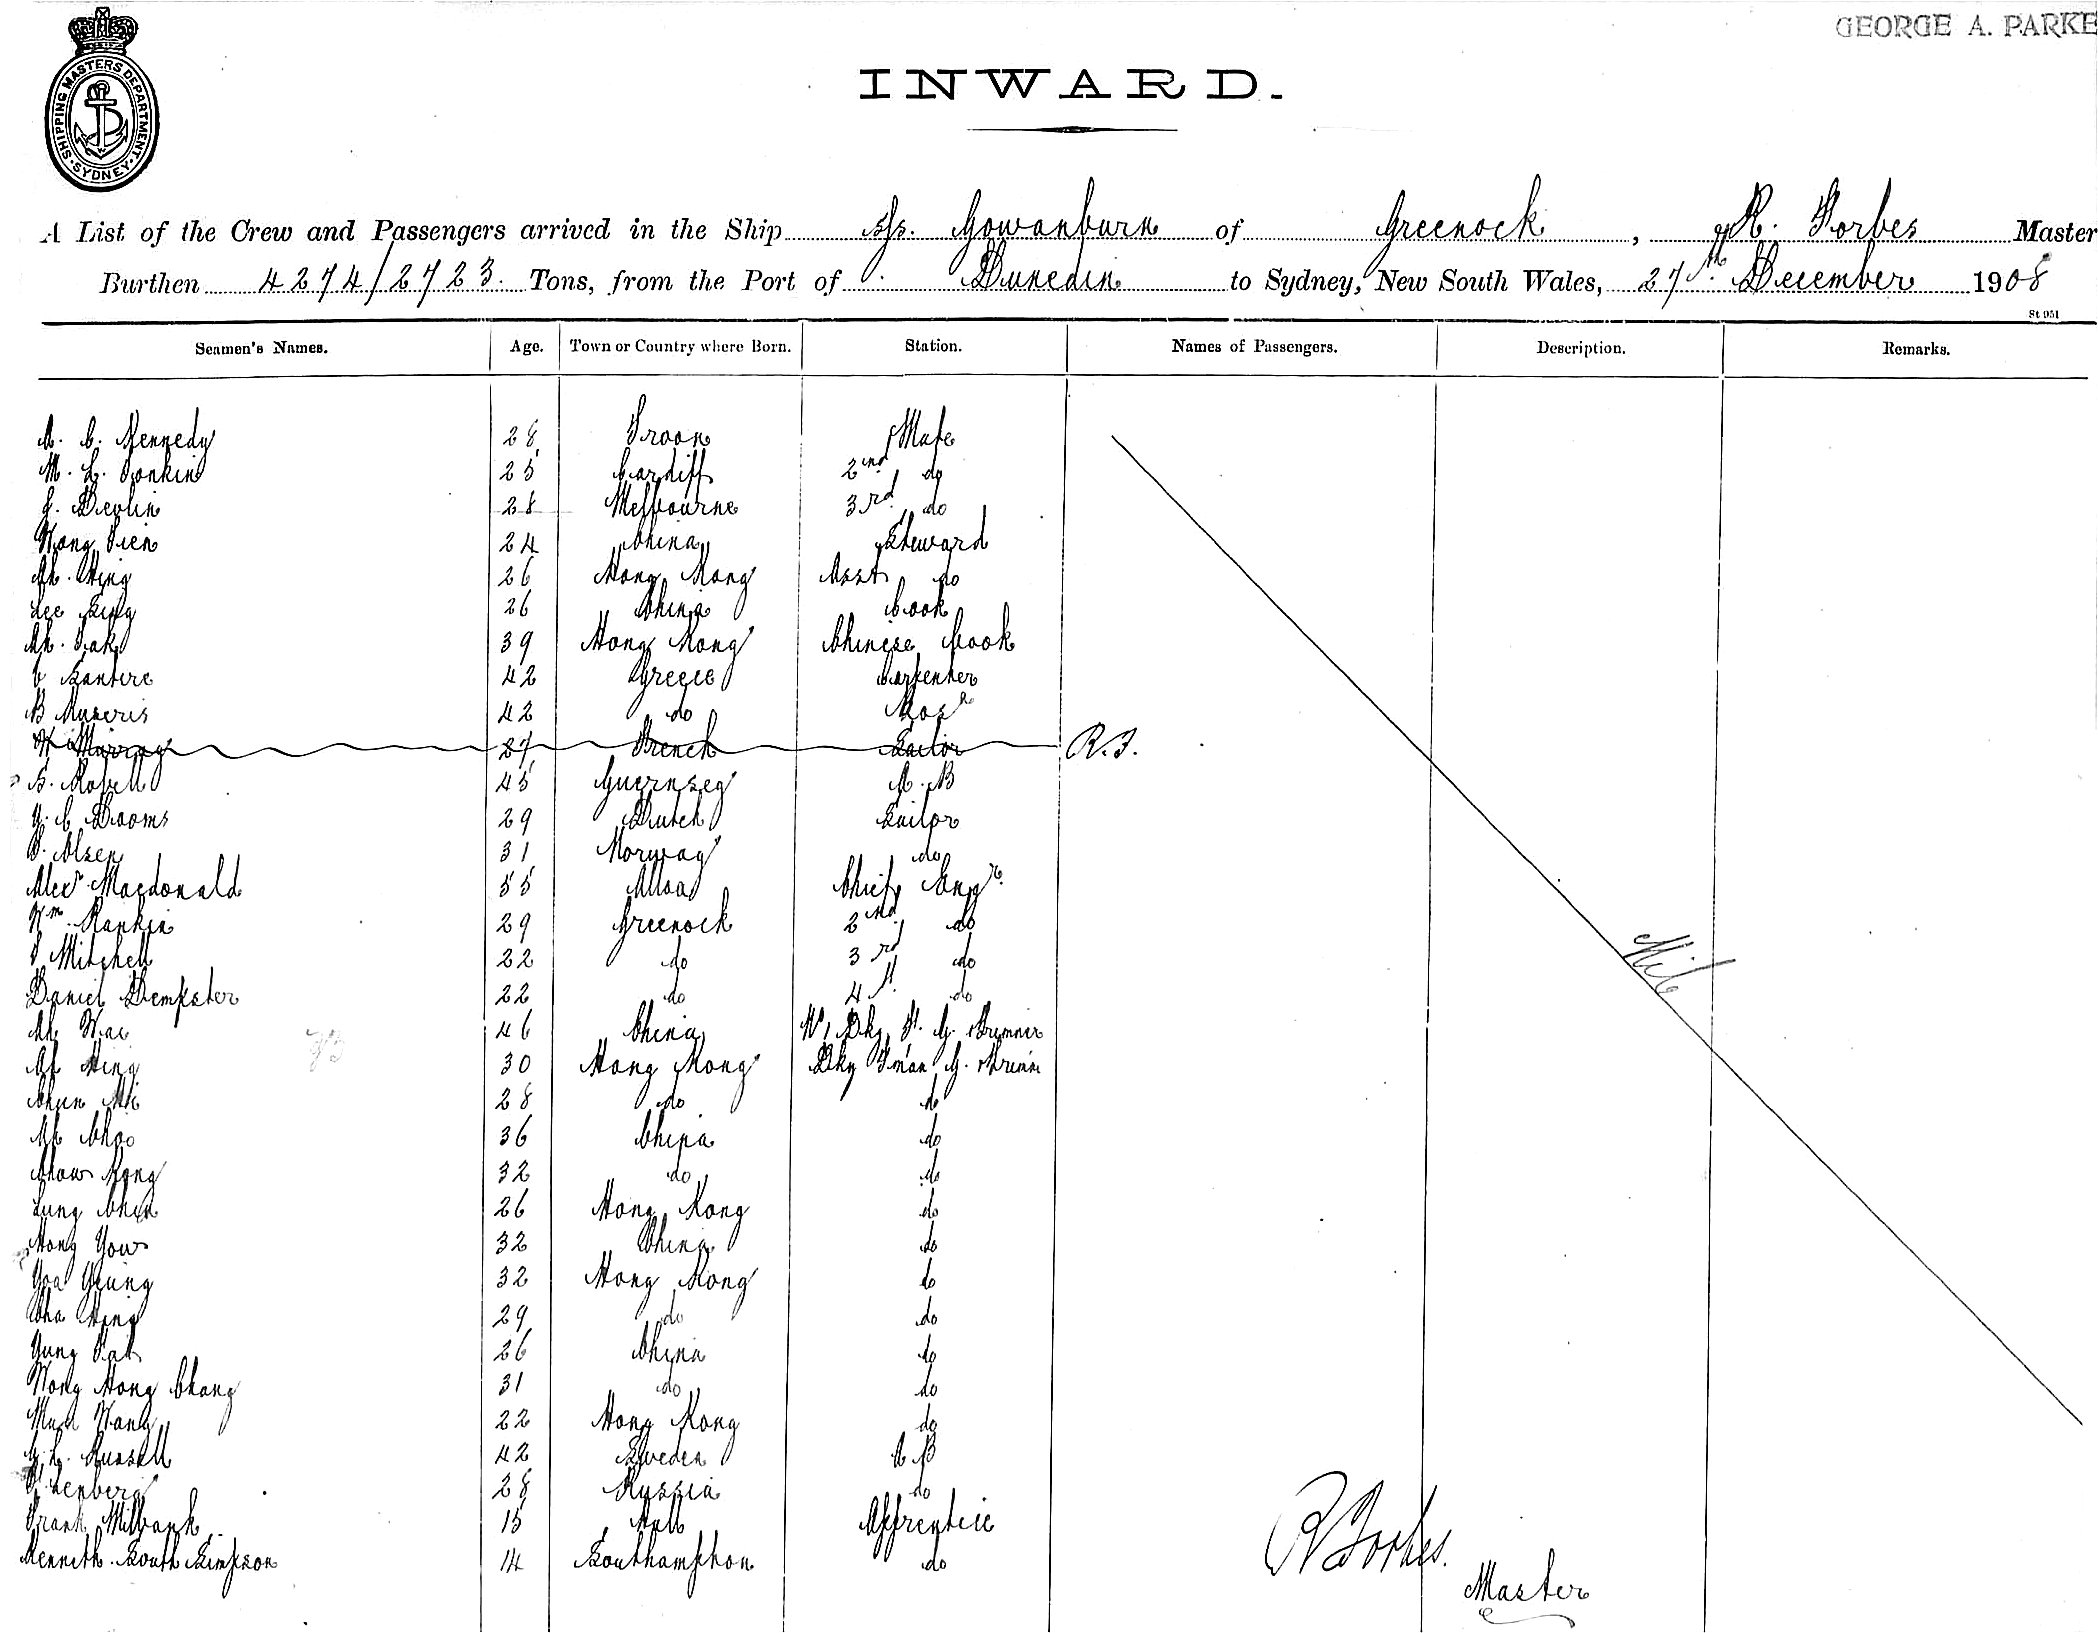 GEORGE A. PARKE
SHIPPING MASTERS DEPARTMENT SYDNEY
INWARD.
A List of the Crew and Passengers arrived in the Ship S/s. Gowanburn of Greenock, R. Forbes Master
Burthen 4274/2723. Tons, from the Port of Dunedin to Sydney, New South Wales, 27th December 1908
St 051
Seamen's Names. Age. Town or Country where Born. Station. Names of Passengers. Description. Remarks.
A. C. Kennedy 28 Troon Mate
M. L. Tonkin 25 Cardiff 2nd do
J. Devlin 28 Melbourne 3rd do
Wong Tien 24 China Steward
Ah. Hing 26 Hong Kong Asst do
Lee King 26 China Cook
Ah. Tak 39 Hong Kong Chinese Cook
C Santire 42 Greece Carpenter
B Maseris 42 do Bosn
W Murray 27 French Sailor R.F.
45 Guernsey A. B
C Dooms 29 Dutch Sailor
Olsen 31 Norway do
Alexr Macdonald 55 Alloa Chief Engr.
Wm. Rankin 29 Greenock 2nd do
Mitchell 22 do 3rd do
Nil
Daniel Dempster 22 do 4th do
Ah Wai 46 China No 1 Dky F. G. Trimmer
Ah Hing 30 Hong Kong Dky F'man G. Trimm
Chun 28 do do
Ah Choo 36 China do
Chow Kong 32 do do
Lung Chun 26 Hong Kong do
Hong Yow 32 China do
Yeung 32 Hong Kong do
Cha Hing 29 do do
Yung Pak 26 China do
Wong Hong Chong 31 do do
Wang 22 Hong Kong do
Russell 42 Sweden A B
28 Russia do
Frank Milbank 15 Hull Apprentice
Kenneth South Simpson 14 Southampton do
R Forbes.
Master